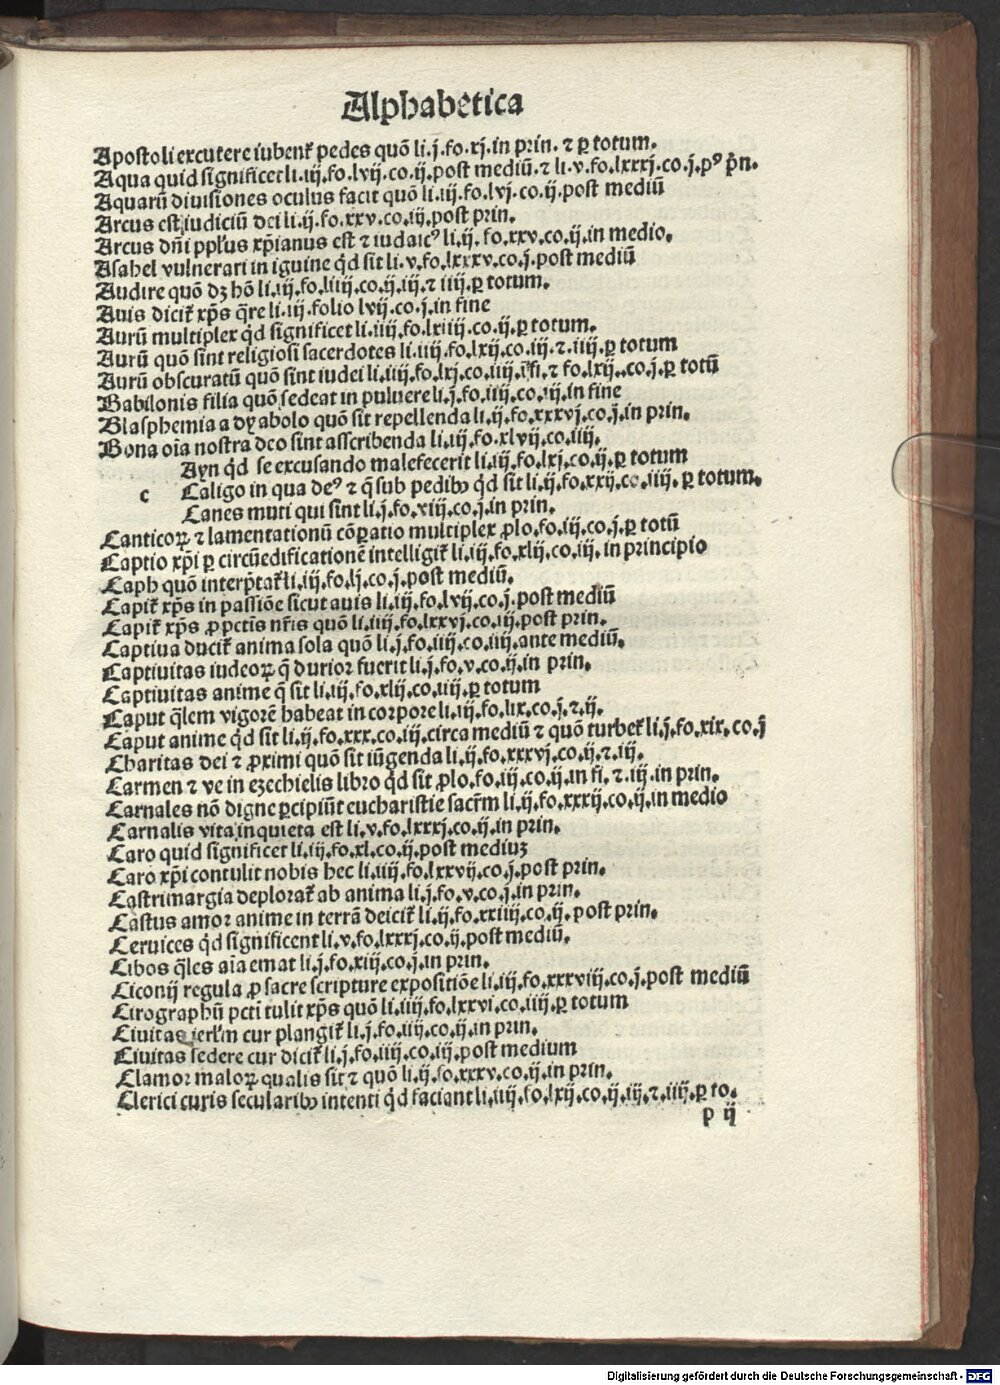 Alphabetica
Apostoli excutere iubent᷑ pedes quõ li.j.fo.xj.in prin. ⁊ ꝑ totum.
Aqua quid significet li.iij.fo.lvij.co.ij.post mediũ.⁊ li.v.fo.lxxxj.co.j.pꝰ p̃n.
Aquarũ diuisiones oculus facit quõ li.iij.fo.lvj.co.ij.post mediũ
Arcus est iudiciũ dei li.ij.fo.xxv.co.iij.post prin.
Arcus dñi ppl̃us xp̃ianus est ⁊ iudaicꝰ li.ij. fo.xxv.co.ij.in medio.
Asahel vulnerari in iguine qd̃ sit li.v.fo.lxxxv.co.j.post mediũ
Audire quõ dꝫ hõ li.iij.fo.liiij.co.ij.iij.⁊ iiij.ꝑ totum.
Auis dicit᷑ xp̃s q̃re li.iij.folio lvij.co.j.in fine
Aurũ multiplex qd̃ significet li.iiij.fo.lxiiij.co.ij.ꝑ totum.
Aurũ quõ sint religiosi sacerdotes li.iiij.fo.lxij.co.iij.⁊.iiij.ꝑ totum
Aurũ obscuratũ quõ sint iudei li.iiij.fo.lxj.co.iiij.ĩ fi.⁊ fo.lxij..co.j.ꝑ totũ
Babilonis filia quõ sedeat in puluere li.j.fo.iiij.co.iij.in fine
Blasphemia a dyabolo quõ sit repellenda li.ij.fo.xxxvj.co.j.in prin.
Bona oĩa nostra deo sint asscribenda li.iij.fo.xlvij.co.iiij.
Ayn qd̃ se excusando malefecerit li.iij.fo.lxj.co.ij.ꝑ totum
c Caligo in qua deꝰ ⁊ q̃ sub pedibꝰ qd̃ sit li.ij.fo.xxij.co.iiij.ꝑ totum.
Canes muti qui sint li.j.fo.xiij.co.j.in prin.
Canticoꝝ ⁊ lamentationũ cõꝑatio multiplex ꝓlo.fo.iij.co.j.ꝑ totũ
Captio xp̃i ꝑ circũedificationẽ intelligit᷑ li.iij.fo.xlij.co.iij. in principio
Caph quõ interp̃tat᷑ li.iij.fo.lj.co.j.post mediũ.
Capit᷑ xp̃s in passiõe sicut auis li.iij.fo.lvij.co.j.post mediũ
Capit᷑ xp̃s ꝓ pctis nr̃is quõ li.iiij.fo.lxxvj.co.iij.post prin.
Captiua ducit᷑ anima sola quõ li.j.fo.iiij.co.iiij.ante mediũ.
Captiuitas iudeoꝝ q̃ durior fuerit li.j.fo.v.co.ij.in prin.
Captiuitas anime q̃ sit li.iij.fo.xlij.co.iiij.ꝑ totum
Caput q̃lem vigorẽ habeat in corpore li.iij.fo.lix.co.j.⁊.ij.
Caput anime qd̃ sit li.ij.fo.xxx.co.iij.circa mediũ ⁊ quõ turbet᷑ li.j.fo.xix.co.j
Charitas dei ⁊ ꝓximi quõ sit iũgenda li.ij.fo.xxxvj.co.ij.⁊.iij.
Carmen ⁊ ve in ezechielis libro qd̃ sit ꝓlo.fo.iij.co.ij.in fi.⁊.iij.in prin.
Carnales nõ digne ꝑcipiũt eucharistie sacr̃m li.ij.fo.xxxij.co.ij.in medio
Carnalis vita inquieta est li.v.fo.lxxxj.co.ij.in prin.
Caro quid significet li.iij.fo.xl.co.ij.post mediuꝫ
Caro xp̃i contulit nobis hec li.iiij.fo.lxxvij.co.j.post prin.
Castrimargia deplorat᷑ ab anima li.j.fo.v.co.j.in prin.
Castus amor anime in terrã deicit᷑ li.ij.fo.xxiiij.co.ij. post prin.
Ceruices qd̃ significent li.v.fo.lxxxj.co.ij.post mediũ.
Cibos q̃les aĩa emat li.j.fo.xiij.co.j.in prin.
Ciconij regula ꝓ sacre scripture expositiõe li.iij.fo.xxxviij.co.j.post mediũ
Cirographũ pcti tulit xp̃s quõ li.iiij.fo.lxxvi.co.iiij.ꝑ totum
Ciuitas ierl̃m cur plangit᷑ li.j.fo.iiij.co.ij.in prin.
Ciuitas sedere cur dicit᷑ li.j.fo.iiij.co.iij.post medium
Clamor maloꝝ qualis sit ⁊ quõ li.ij.fo.xxxv.co.ij.in prin.
Clerici curis secularibꝰ intenti qd̃ faciant li.iiij.fo.lxij.co.ij.iij.⁊.iiij.ꝑ to.
p ij
Digitalisierung gefördert durch die Deutsche Forschungsgemeinschaft - DFG